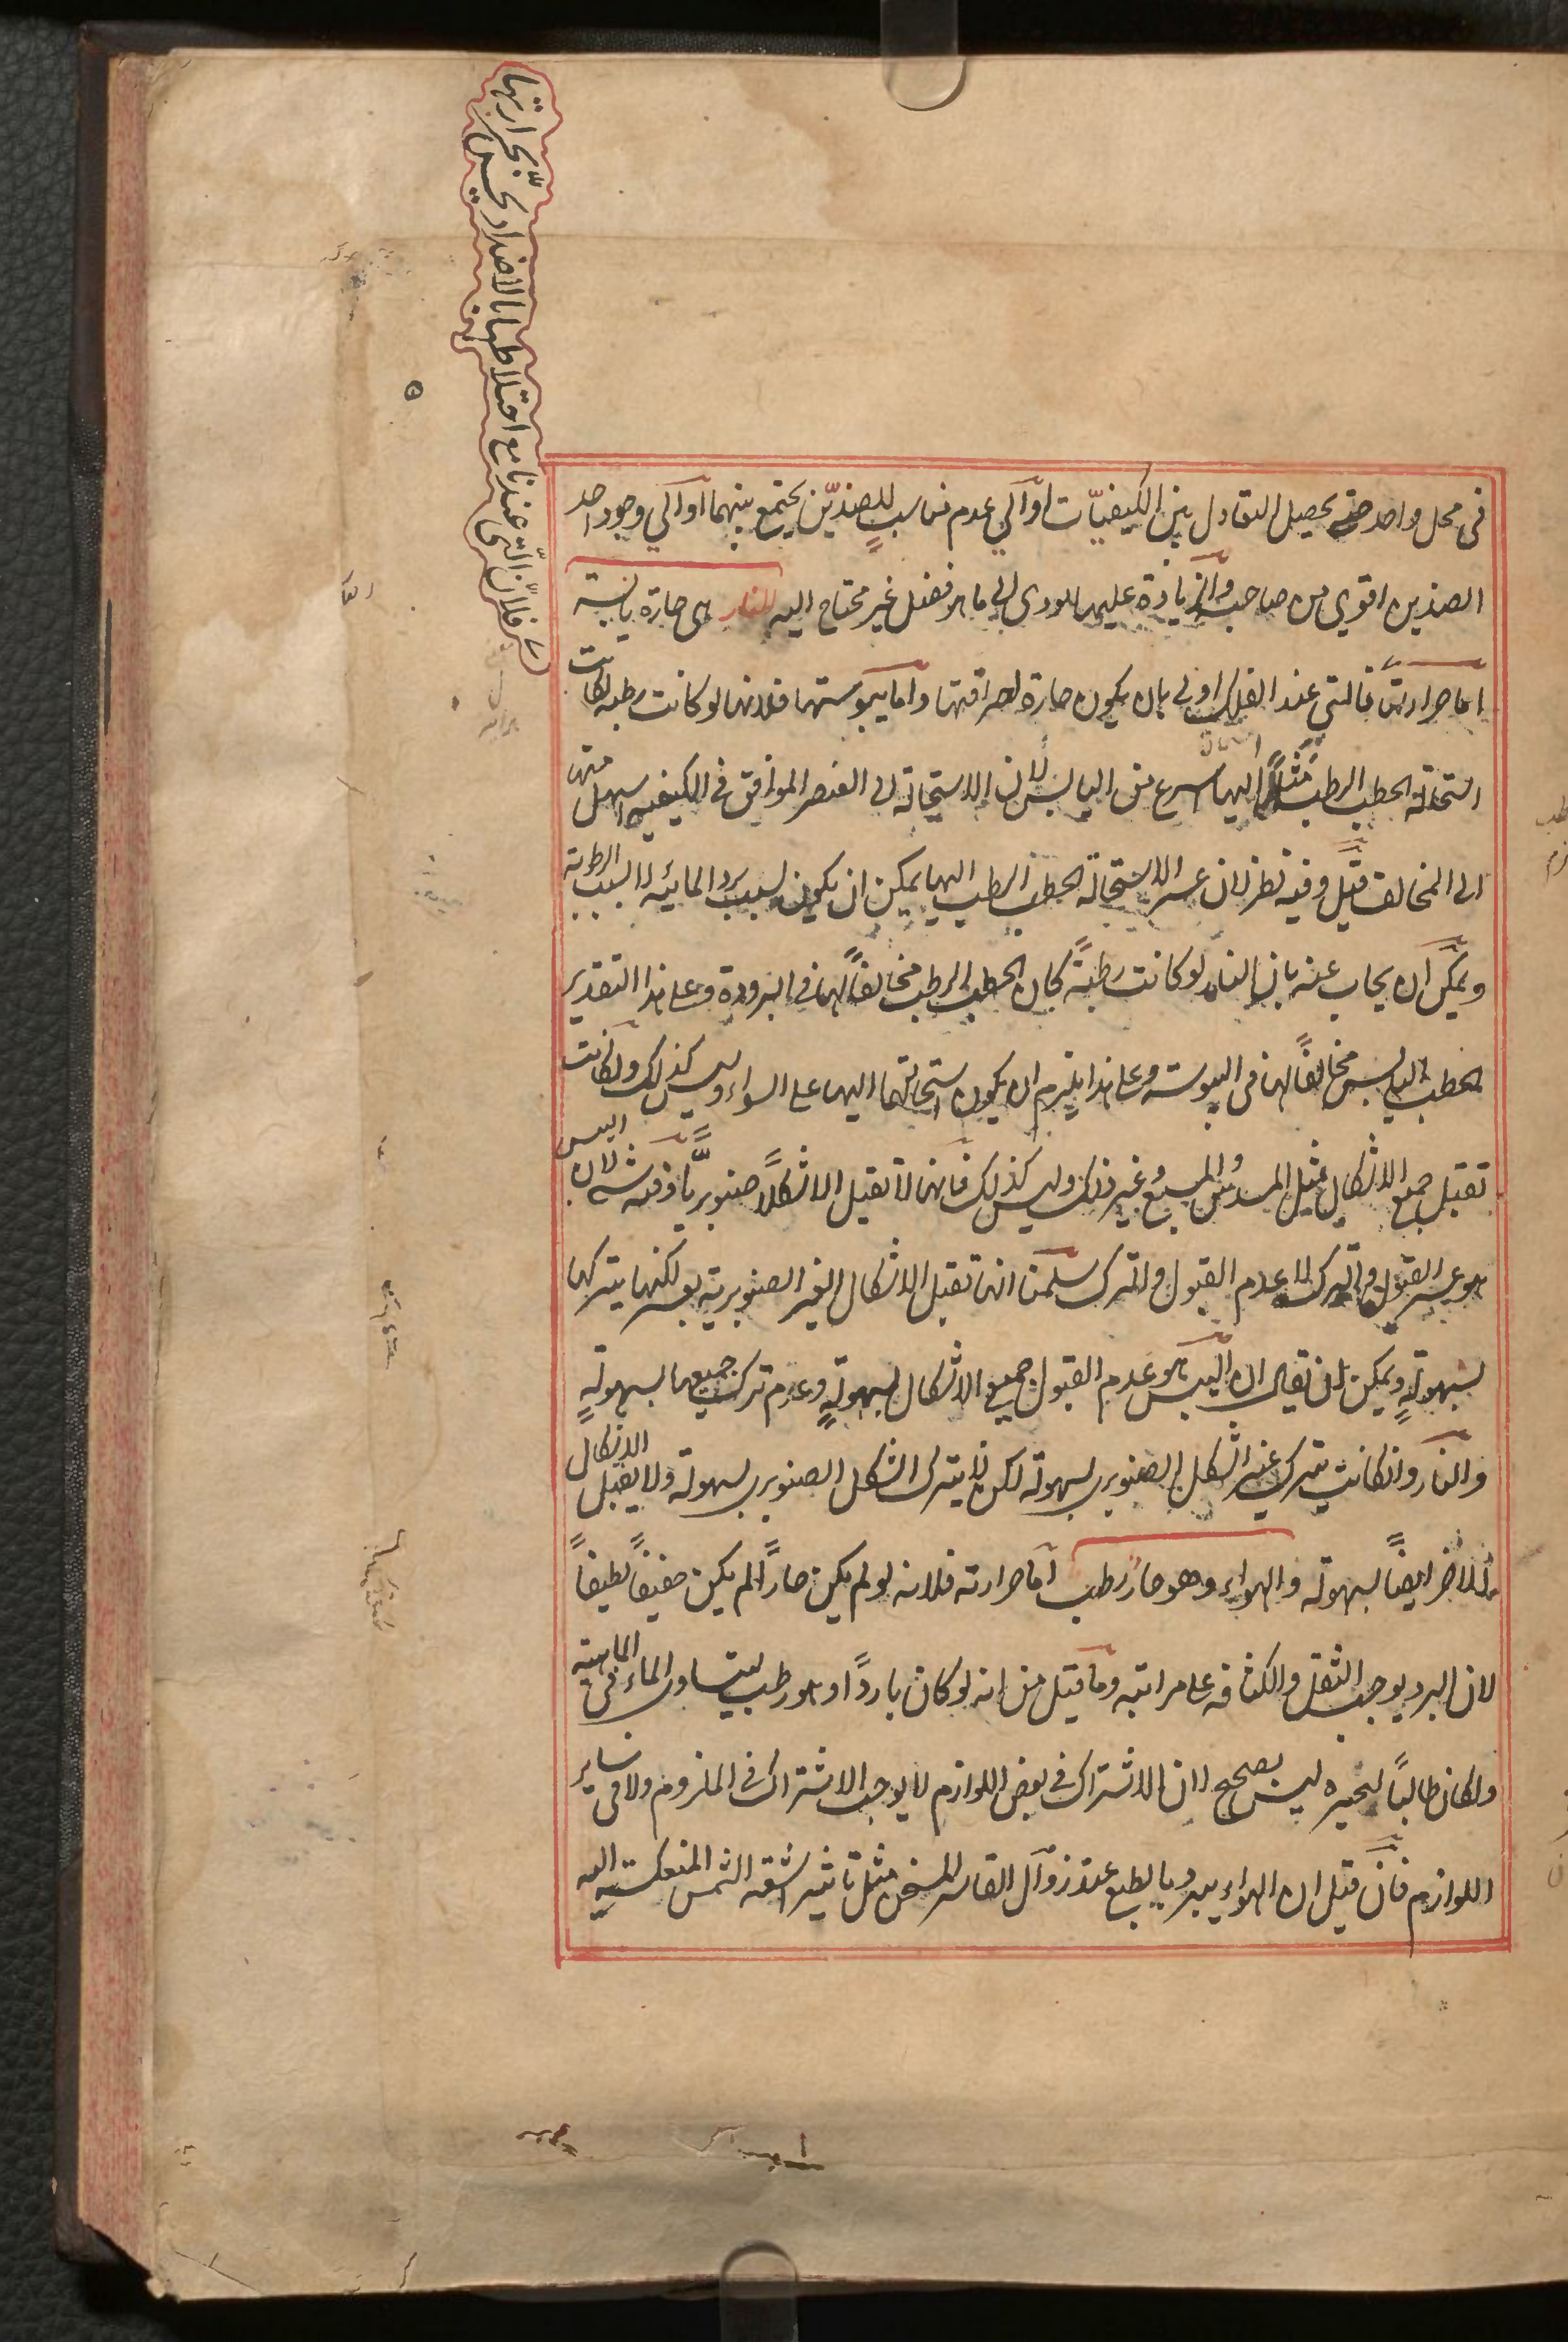 في محل واحد حتى يحصل التعادل بين الكيفيّات أو إلى عدم تناسب للضدّين يجتمع بينهما أو إلى وجود احد
الضدين اقوى من صاحبه والزيادة عليهما يؤدى إلى ما هو فضل غير محتاج اليه النار هى حارة يابسة
اما حرارتها فالتي عند الفلك اولى بان يكون حارة لحراقتها واما يبوستها فلانها لو كانت رطبة لكانت
استحالة الحطب الرطب مثلاً اليها اسرع من اليابس لان الاستحالة الى العنصر الموافق في الكيفية اسهل منها
الى المخالف قيل وفيه نظر لان عسر الاستحالة الحطب الرطب اليها يمكن ان يكون بسبب برد المائية لا بسبب الرطوبة
ويمكن ان يجاب عنه بان النار لو كانت رطبةً كان الحطب الرطب مخالفاً لها في البرودة وعلى هذا التقدير
الحطب اليابس مخالفاً لها في اليبوسة وعلى هذا يلزم ان يكون استحالتهما اليها على السواء وليس كذلك ولكانت
تقبل جميع الاشكال مثل المسدس والمسبع وغير ذلك وليس كذلك فانها لا تقبل الا شكلاً صنوبريّاً وفيه شئ لان اليبس
هو عسر القبول والترك لا عدم القبول والترك سلمنا انها تقبل الاشكال الغير الصنوبرية بعسر لكنها يتركها
بسهولةٍ ويمكن ان يقال ان اليبس هو عدم القبول جميع الاشكال بسهولةٍ وعدم ترك جميعها بسهولةٍ
والنار وان كانت يترك غير الشكل الصنوبرى بسهولة لكن لا يترك الشكل الصنوبرى بسهولة ولا يقبل الاشكال
الاخر ايضاً بسهولة والهواء وهو حار رطب اما حرارته فلانه لو لم يكن حاراً لم يكن خفيفاً لطيفاً
لان البرد يوجب الثقل والكثافة على مراتبه وما قيل من انه لو كان بارداً وهو رطب ليساوى الماء في الماهية
ولكان طالباً لحيزه ليس بصحيح لان الاشتراك في بعض اللوازم لا يوجب الاشتراك في الملزوم ولا في ساير
اللوازم فان قيل ان الهواء يبرد بالطبع عند زوال القاسر المسخن مثل تأثير اشعة الشمس المنعكسة اليه
فلان التى عندنا مع اختلاطها بالاضداد يحس بحرارتها